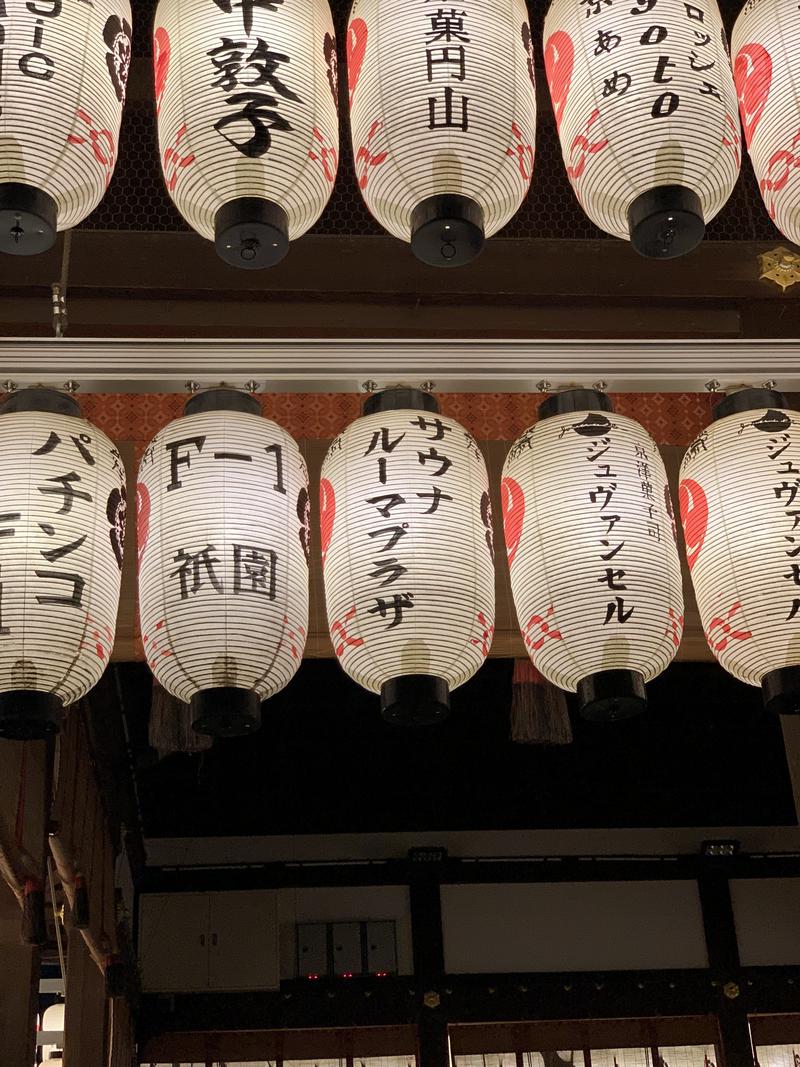 gic
中敦子
菓円山
ロッシェ
goto
京あめ
パチンコ
F-1
祇園
サウナ
ルーマプラザ
京洋菓子司
ジュヴァンセル
ジュヴァンセル